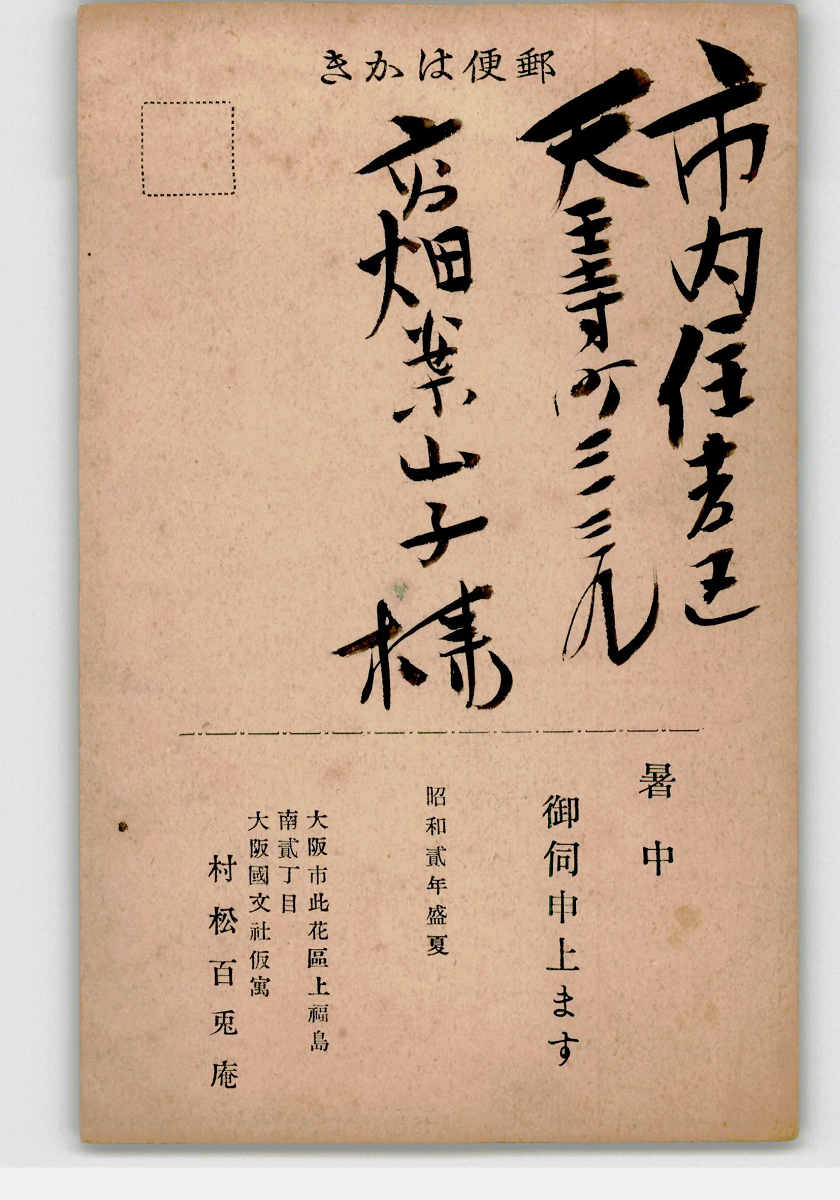 郵便はかき
市内住吉区
天王寺町三一三三九
高畑葉山子様
暑中
御伺申上ます
昭和貳年盛夏
大阪市此花區上福島
南貳丁目
大阪國文社仮寓
村松百兎庵